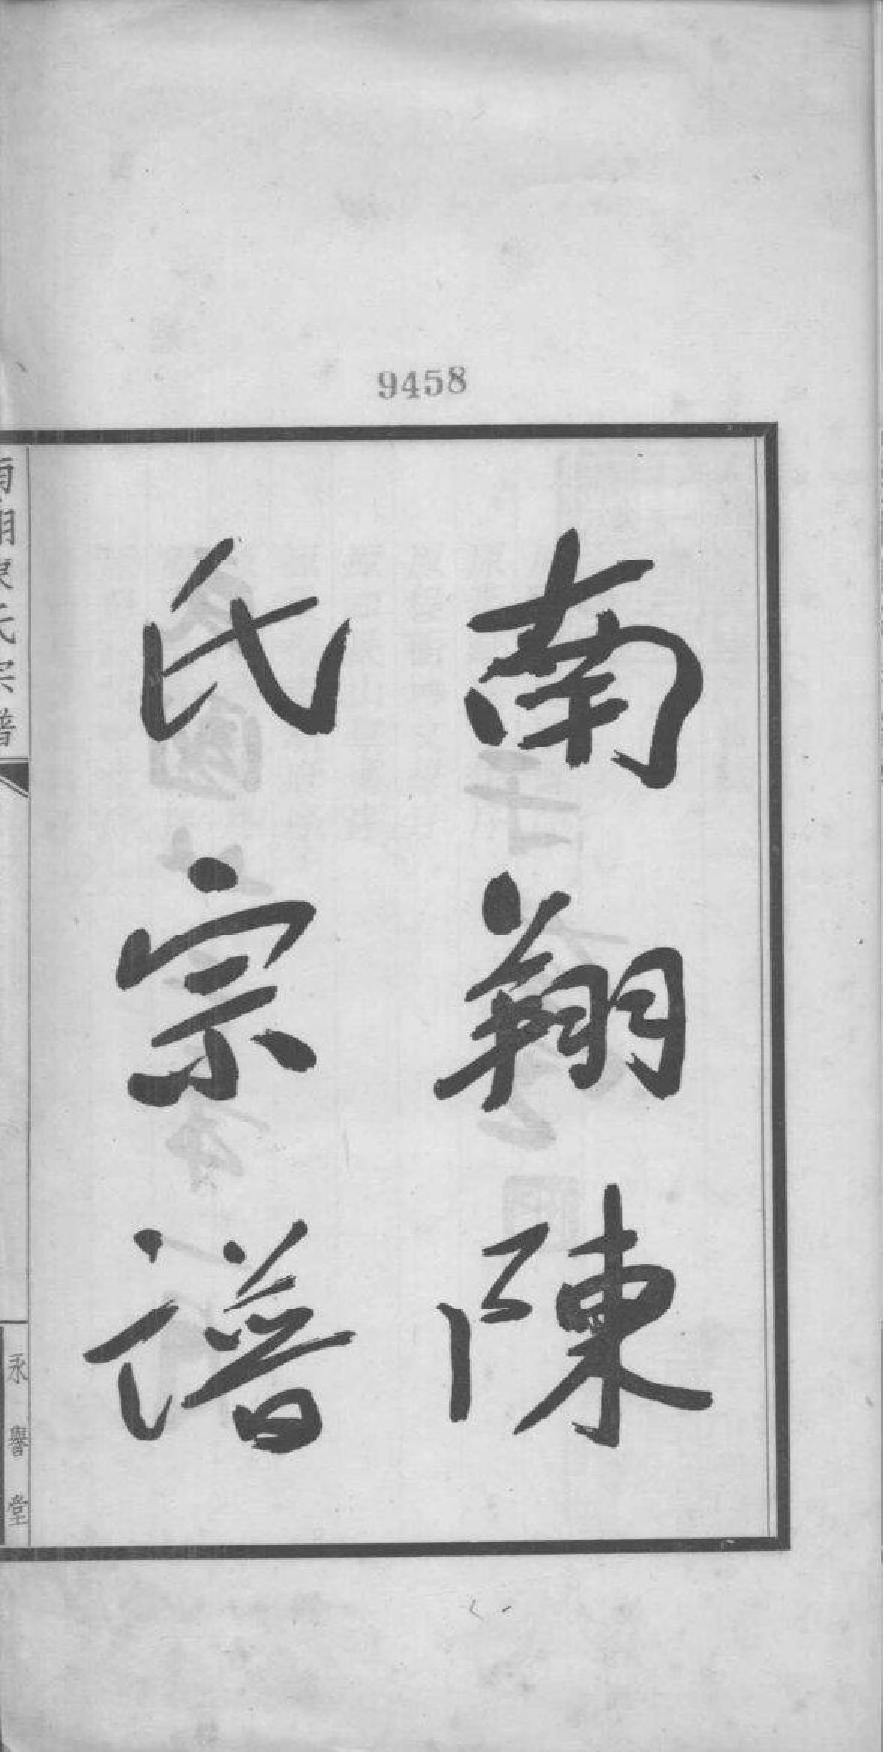 9458
南翔陳
氏宗譜
南翔陳氏宗譜
永譽堂